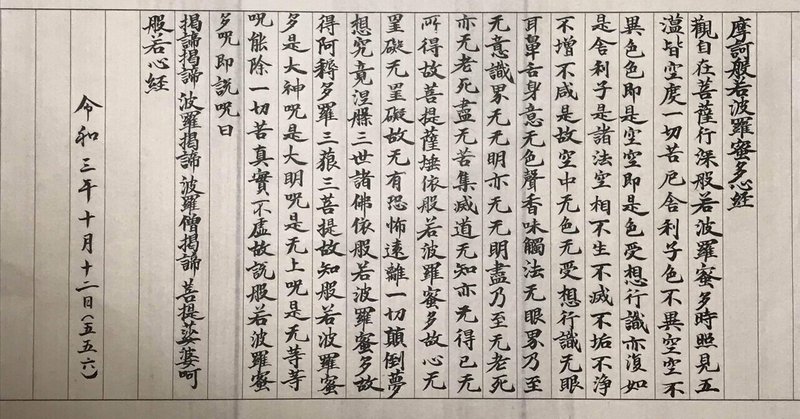 摩訶般若波羅蜜多心経
觀自在菩薩行深般若波羅蜜多時照見五
蘊皆空度一切苦厄舍利子色不異空空不
異色色即是空空即是色受想行識亦復如
是舍利子是諸法空相不生不滅不垢不浄
不增不減是故空中无色无受想行識无眼
耳鼻舌身意无色聲香味觸法无眼界乃至
无意識界无无明亦无无明盡乃至无老死
亦无老死盡无苦集滅道无知亦无得已无
所得故菩提薩埵依般若波羅蜜多故心无
罣礙无罣礙故无有恐怖遠離一切顛倒夢
想究竟涅槃三世諸佛依般若波羅蜜多故
得阿耨多羅三藐三菩提故知般若波羅蜜
多是大神呪是大明呪是无上呪是无等等
呪能除一切苦真實不虛故說般若波羅蜜
多呪即說呪曰
揭諦揭諦 波羅揭諦 波羅僧揭諦 菩提莎婆呵
般若心経
令和三年十月十二日(五五六)